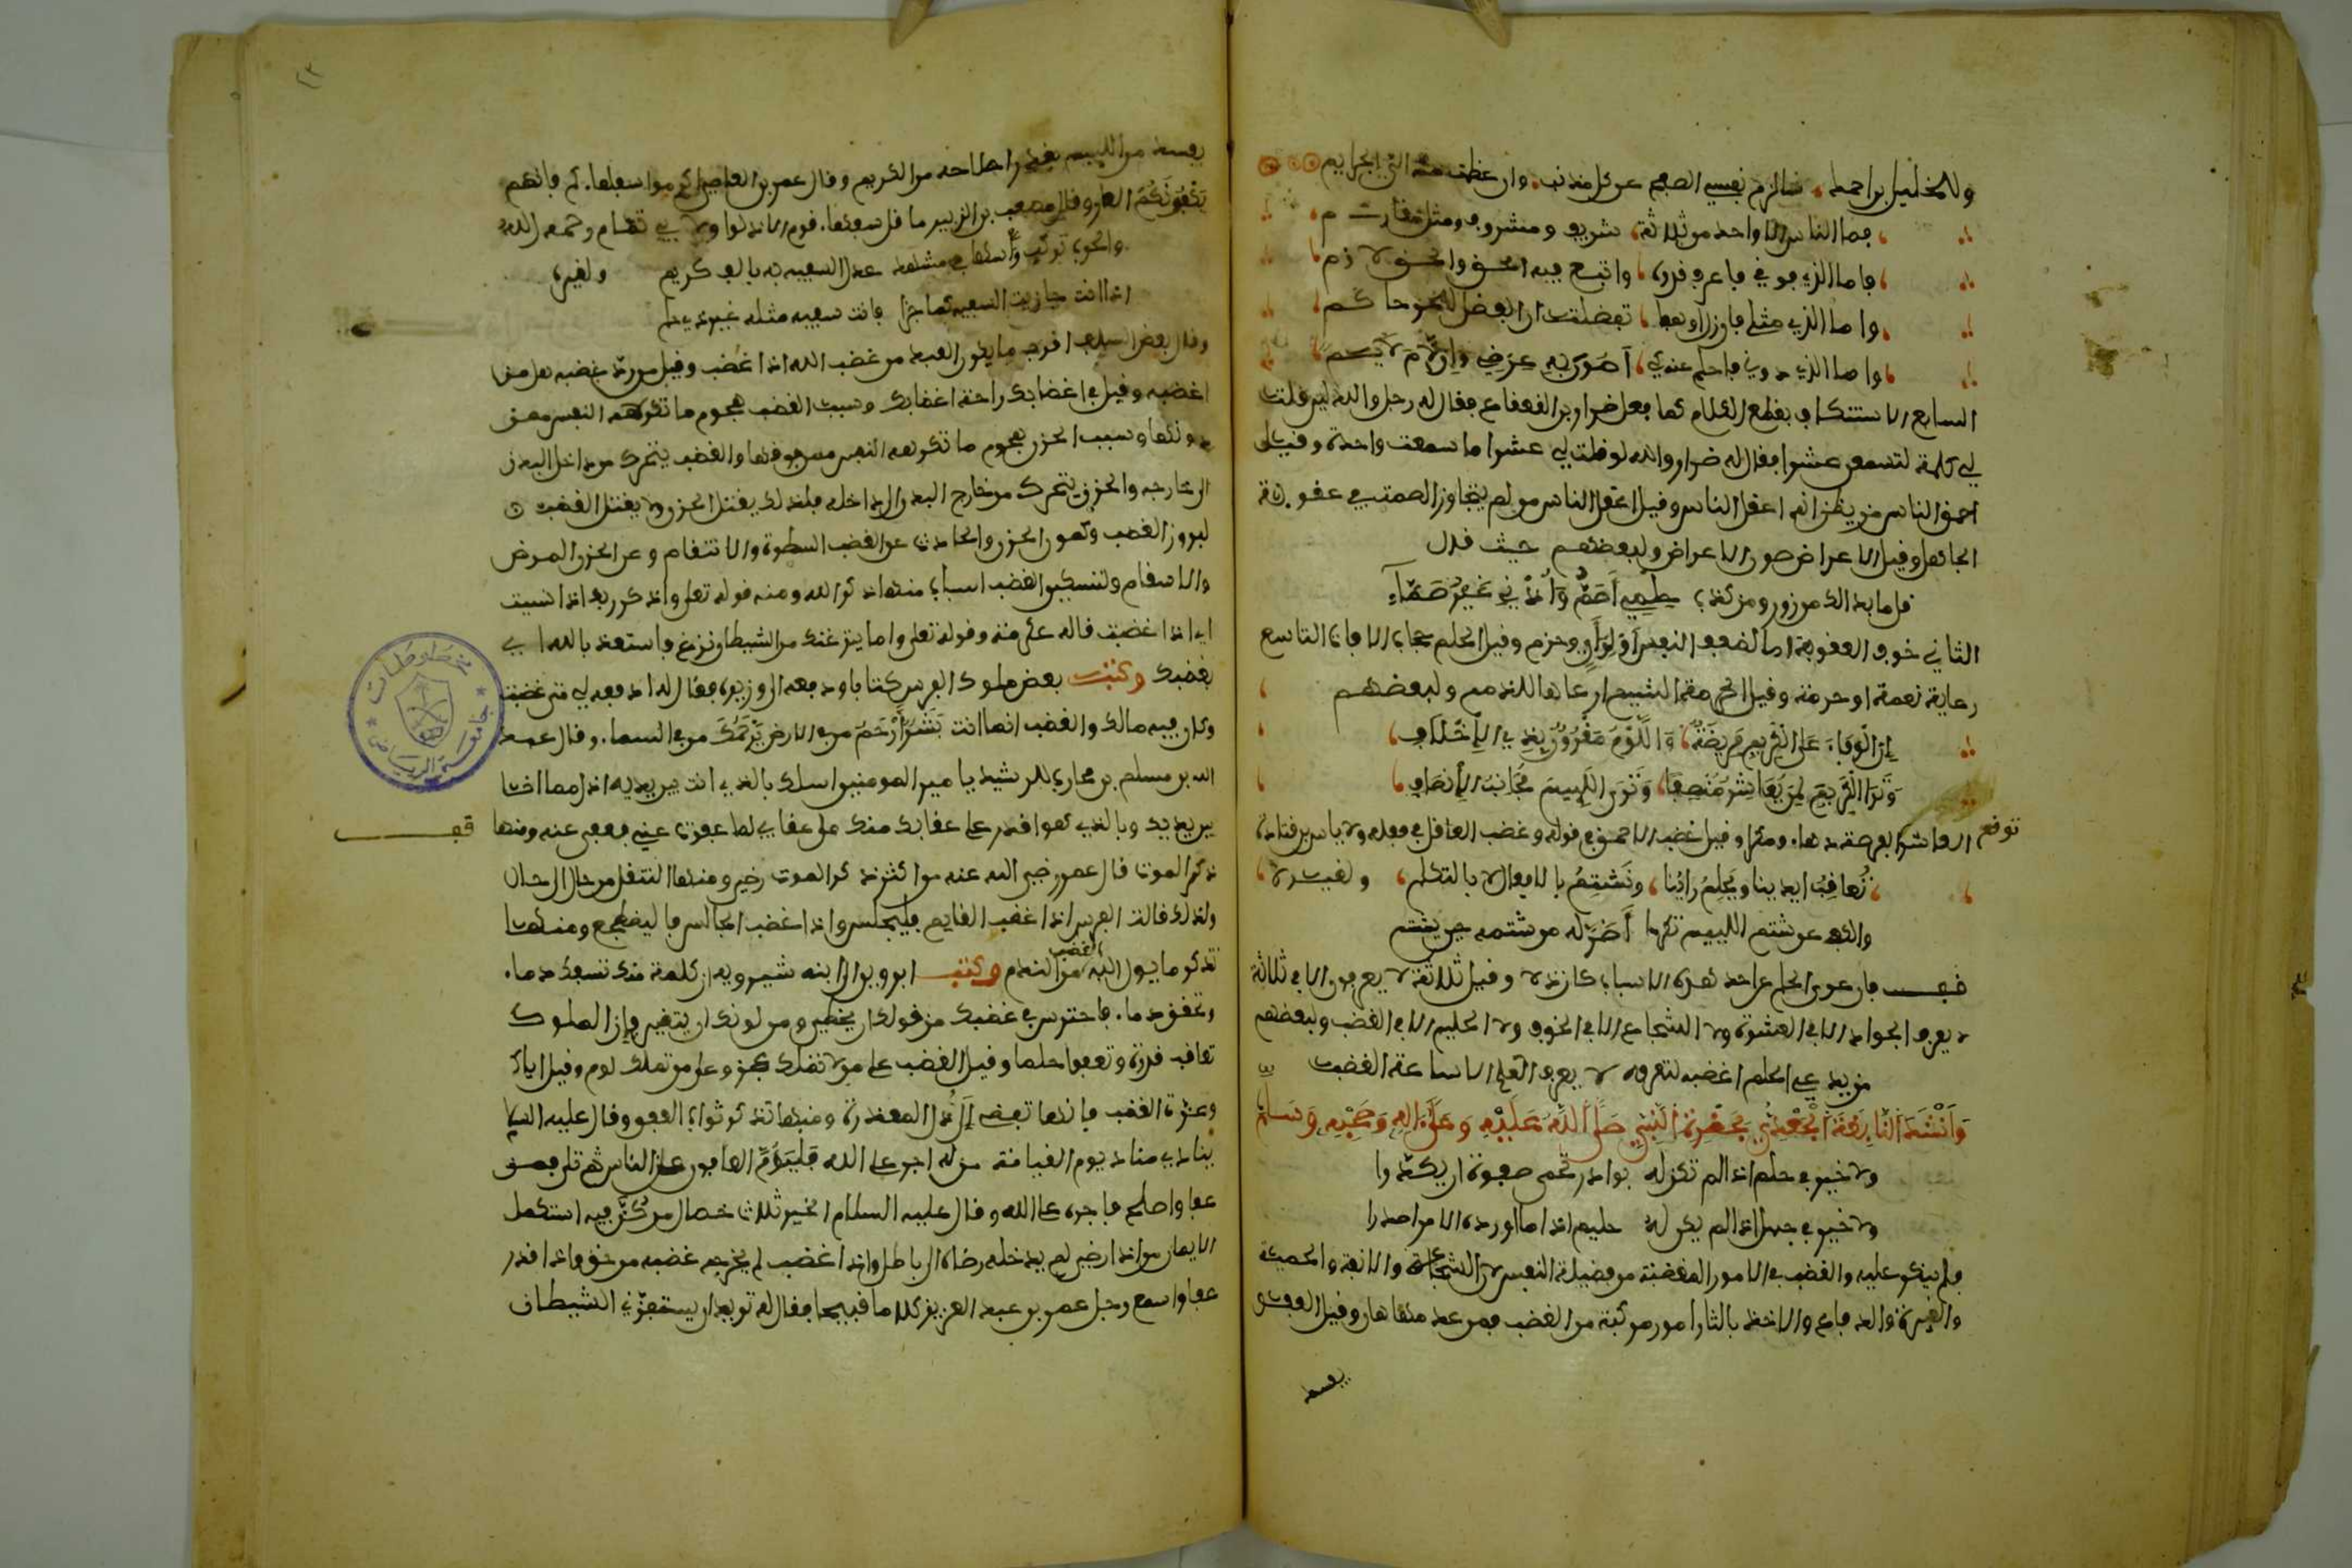 وللخليل بن احمد سالزم نفسي الصفح عن كل مذنب وان عظمت منه الي الجرايم
فما الناس الا واحد من ثلاثة شريف ومشروف ومثل مقاوم
فاما الذي فوقي فاعرف قدره واتبع فيه الحق والحق لازم
واما الذي مثلي فان زل او هفا تفضلت ان الفضل للحر حاكم
واما الذي دوني فاحلم عندي اصون به عرضي وان لام لايم
السابع الاستنكاف بقطع الكلام كما فعل ضرار بن القعقاع فقال له رجل والله لين قلت
لي كلمة لتسمعن عشرا فقال له ضرار والله لو قلت لي عشرا ما سمعت واحدة وقيل
احمق الناس من يظن انه اعقل الناس وقيل اعقل الناس من لم يتجاوز الصمت في عقوبة
الجاهل وقيل الاعراض صون الاعراض ولبعضهم حيث قال
قل ما بدا لك من زور ومن كذب حلمي اصم واذني غير صماء
الثامن خوف العقوبة اما لضعف النفس او لراي وحزم وقيل الحلم حجاب الافات التاسع
رعاية نعمة او حرمة وقيل اكرم الشيم ارعاها للذمم ولبعضهم
ان الوفاء على الكريم فريضة واللوم مقرون بذي الاخلاف
وترا الكريم لمن يعاشر منصفا وترى اللييم مجانب الانصاف
توقع
العاشر الفرصة دهاء ومكرا وقيل غضب الاحمق في قوله وغضب العاقل في فعله ولاياس بن قتادة
تعاقب ايدينا ويحلم راينا ونشتم بالافعال لا بالتكلم ولغيره
والكف عن شتم اللييم تكرما اضر له من شتمه حين يشتم
فصل فان عري الحلم عن احد هذه الاسباب كان ذلا وقيل ثلاثة لا يعرفون الا في ثلاثة
لا يعرف الجواد الا في العشرة ولا الشجاع الا في الخوف ولا الحليم الا في الغضب ولبعضهم
من يدعي الحلم اغضبه لتعرفه لا يعرف الحلم الا ساعة الغضب
وانشد النابغة الجعدي بحضرة النبي صلى الله عليه وعلى اله وصحبه وسلم
ولا خير في حلم اذا لم تكن له بوادر تحمي صفوه ان يكدرا
ولا خير في جهل اذا لم يكن له حليم اذا ما اورد الامر اصدرا
فلم ينكر عليه والغضب في الامور المغضبة من فضيلة النفس لان الشجاعة والانفة والحمية
والغيرة والدفاع والاخذ بالثار امور مركبة من الغضب فمن عدمها هان وقيل العفو
يفسد
يفسد من اللييم بقدر اصلاحه من الكريم وقال عمرو بن العاص اكرموا سفهاءكم فانهم
يكفونكم العار وقال مصعب بن الزبير ما قل سفهاء قوم الا ذلوا ولابي تمام رحمه الله
والحرب تركب راسها في مشهد عدل السفيه به بالف كريم ولغيره
اذا انت جازيت السفيه كما جزا فانت سفيه مثله غير ذي حلم
وقال بعض السلف اقرب ما يكون العبد من غضب الله اذا غضب وقيل من رد غضبه هد من
اغضبه وقيل في اغضابك راحة اعضابك وسبب الغضب هجوم ما تكرهه النفس ممن
دونها وسبب الحزن هجوم ما تكرهه النفس ممن فوقها والغضب يتحرك من داخل البدن
الى خارجه والحزن يتحرك من خارج البدن الى داخله فلذلك يقتل الحزن ولا يقتل الغضب
لبروز الغضب وكمون الحزن والحادث عن الغضب السطوة والانتقام وعن الحزن المرض
والاسقام ولتسكين الغضب اسباب منها ذكر الله ومنه قوله تعلى واذكر ربك اذا نسيت
اي اذا غضبت قاله عكرمة وقوله تعلى واما ينزغنك من الشيطان نزغ فاستعذ بالله اي
يغضبك وكتب بعض ملوك الفرس كتابا ودفعه الى وزيره فقال له ادفعه لي متى غضبت
وكان فيه مالك والغضب انما انت بشر ارحم من في الارض يرحمك من في السماء وقال عبد
الله بن مسلم بن محارب للرشيد يا امير المومنين اسلك بالذي انت بين يديه اذل مما انا
بين يديك وبالذي هو اقدر على عقابك منك على عقابي لما عفوت عني فعفى عنه ومنها
قف
ذكر الموت قال عمر رضي الله عنه من اكثر ذكر الموت رضي ومنها التنقل من حال الى حال
ولذلك قالت الفرس اذا غضب القايم فليجلس واذا غضب الجالس فاليضطجع ومنها
تذكر ما يول اليه الغضب من الندم وكتب ابرويز الى ابنه شيرويه ان كلمة منك تسفك دما
وتحقن دما فاحترس في غضبك من قولك ان يخطي ومن لونك ان يتغير فان الملوك
تعاقب قدرة وتعفوا حلما وقيل الغضب على من لا تملك عجز وعلى من تملك لوم وقيل اياك
وعزة الغضب فانها تفضي الى ذل المعذرة ومنها تذكر ثواب العفو وقال عليه السلام
ينادي مناد يوم القيامة من له اجر على الله فليقم العافون عن الناس ثم تلى فمن
عفا واصلح فاجره على الله وقال عليه السلام الخير ثلاث خصال من كن فيه استكمل
الايمان من اذا رضي لم يدخله رضاه الى باطل واذا غضب لم يخرجه غضبه من حق واذا قدر
عفا واسمع رجل عمر بن عبد العزيز كلاما قبيحا فقال له تريد ان يستفزني الشيطان
مخطوطات
جامعة الرياض